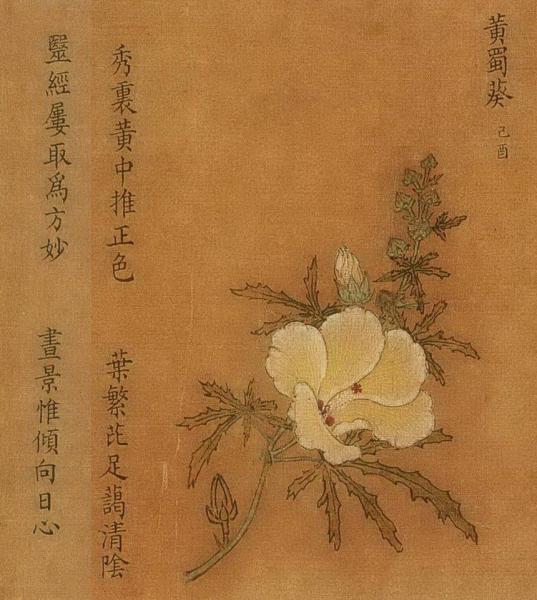 黃蜀葵 己酉
秀裏黃中推正色 葉繁芘足蔼清陰
毉經屢取為方妙 晝景惟傾向日心